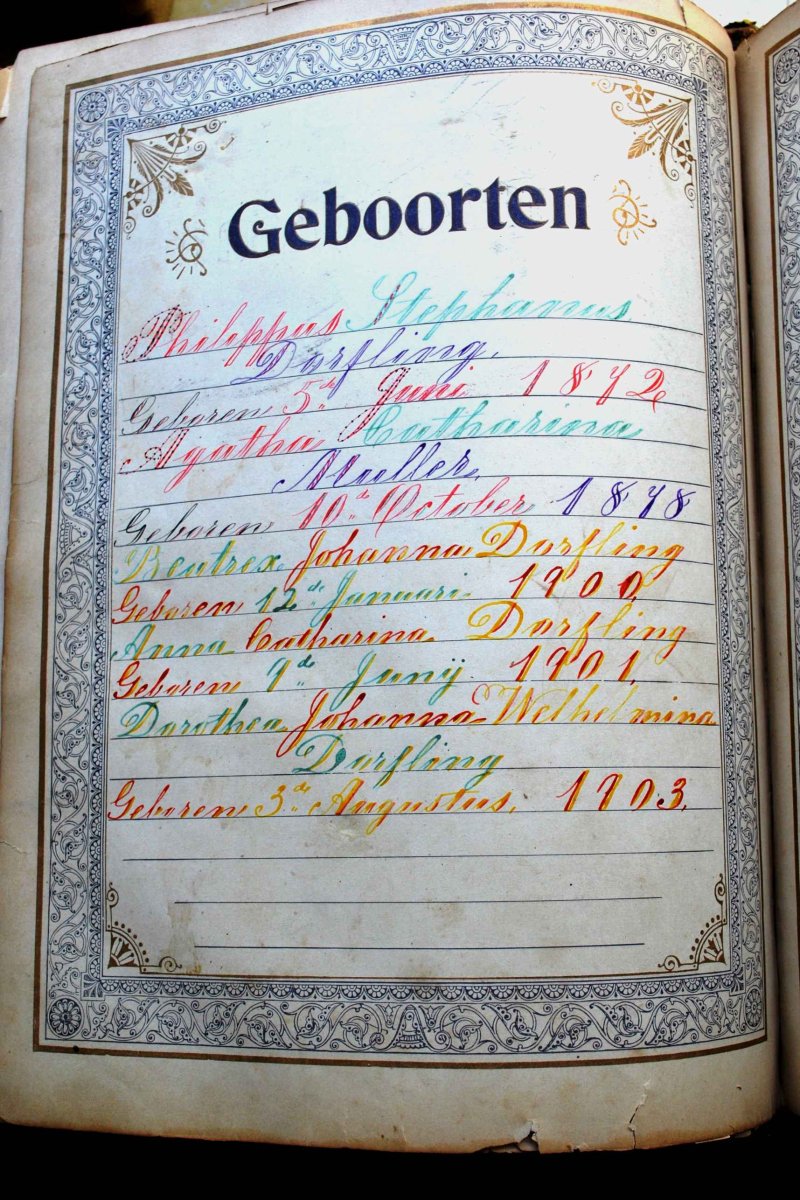 Geboorten
Philippus Stephanus
Dorfling.
Geboren 5de Juni 1872
Agatha Catharina
Muller.
Geboren 10de October 1878
Beatrex Johanna Dorfling
Geboren 12de Januari. 1900.
Anna Catharina Dorfling
Geboren 9de Junij 1901.
Dorothea Johanna Welhelmina
Dorfling
Geboren 3de Augustus. 1903.